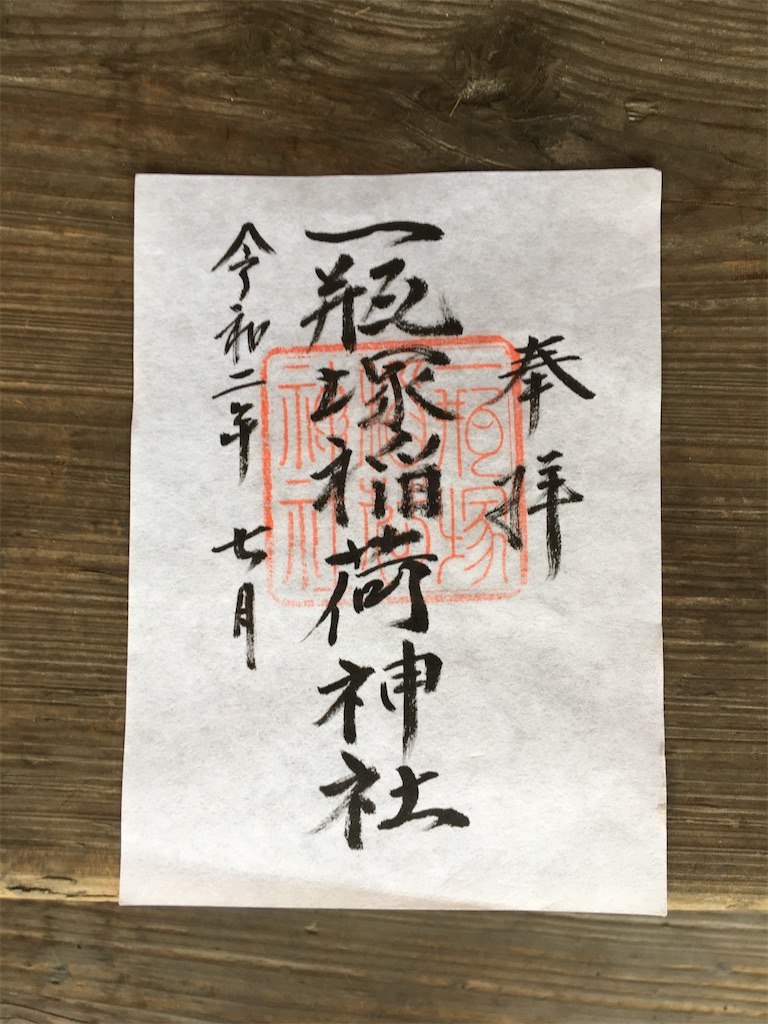 奉拝
一瓶塚稲荷神社
令和二年 七月
一瓶塚
稲荷
神社